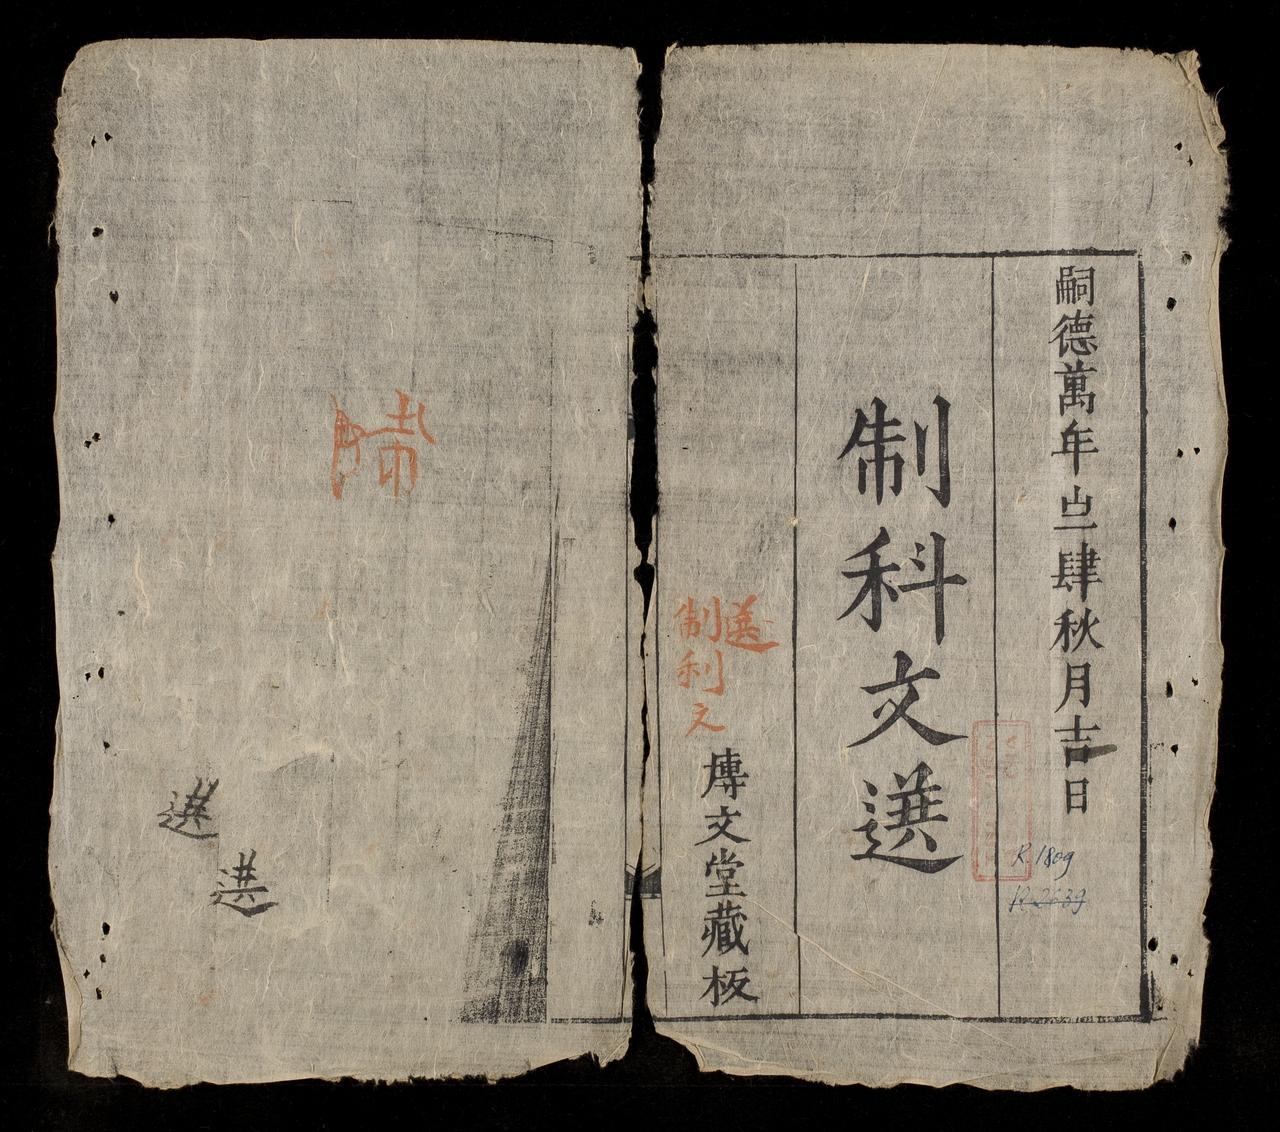 嗣德萬年之肆秋月吉日
制科文選
選
制利文
慱文堂藏板
歸
選
選
R.1809
R.2639